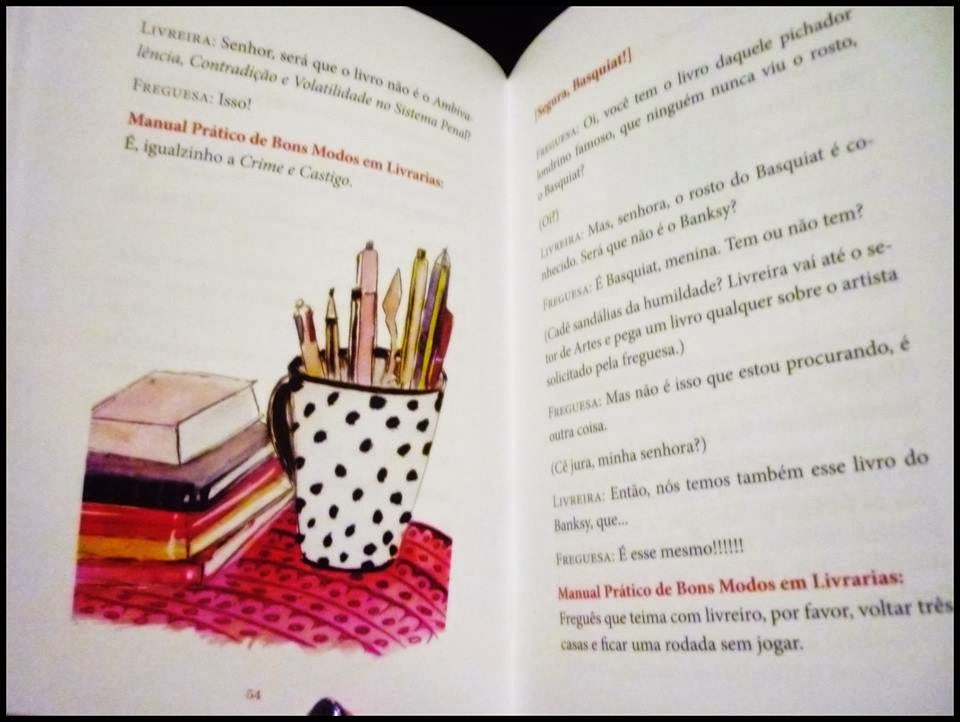 LIVREIRA: Senhor, será que o livro não é o Ambiva-
lência, Contradição e Volatilidade no Sistema Penal?
FREGUESA: Isso!
Manual Prático de Bons Modos em Livrarias:
É, igualzinho a Crime e Castigo.
54
[Segura, Basquiat!]
FREGUESA: Oi, você tem o livro daquele pichador
londrino famoso, que ninguém nunca viu o rosto,
o Basquiat?
(Oi?)
LIVREIRA: Mas, senhora, o rosto do Basquiat é co-
nhecido. Será que não é o Banksy?
FREGUESA: É Basquiat, menina. Tem ou não tem?
(Cadê sandálias da humildade? Livreira vai até o se-
tor de Artes e pega um livro qualquer sobre o artista
solicitado pela freguesa.)
FREGUESA: Mas não é isso que estou procurando, é
outra coisa.
(Cê jura, minha senhora?)
LIVREIRA: Então, nós temos também esse livro do
Banksy, que...
FREGUESA: É esse mesmo!!!!!!
Manual Prático de Bons Modos em Livrarias:
Freguês que teima com livreiro, por favor, voltar três
casas e ficar uma rodada sem jogar.